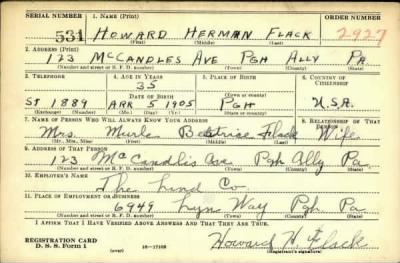 SERIAL NUMBER 1. NAME (Print) ORDER NUMBER
531 HOWARD HERMAN FLACK 2927
(First) (Middle) (Last)
2. ADDRESS (Print)
123 MCCANDLES AVE PGH ALLY PA.
(Number and street or R. F. D. number) (Town) (County) (State)
3. TELEPHONE 4. AGE IN YEARS 5. PLACE OF BIRTH 6. COUNTRY OF CITIZENSHIP
35
DATE OF BIRTH PGH (Town or county)
1889 5 1905 U.S.A.
(Exchange) (Number) (Mo.) (Day) (Yr.) (State or country)
7. NAME OF PERSON WHO WILL ALWAYS KNOW YOUR ADDRESS 8. RELATIONSHIP OF THAT PERSON
Mrs. Beatrice Flack Wife
(Mr., Mrs., Miss) (First) (Middle) (Last)
9. ADDRESS OF THAT PERSON
123 McCandlis Ave Pgh Ally Pa.
(Number and street or R. F. D. number) (Town) (County) (State)
10. EMPLOYER'S NAME
The Co.
11. PLACE OF EMPLOYMENT OR BUSINESS
6949 Lynn Way Pgh. Pa.
(Number and street or R. F. D. number) (Town) (County) (State)
I AFFIRM THAT I HAVE VERIFIED ABOVE ANSWERS AND THAT THEY ARE TRUE.
REGISTRATION CARD
D. S. S. Form 1 (over) 16—17105 Howard H. Flack
(Registrant's signature)